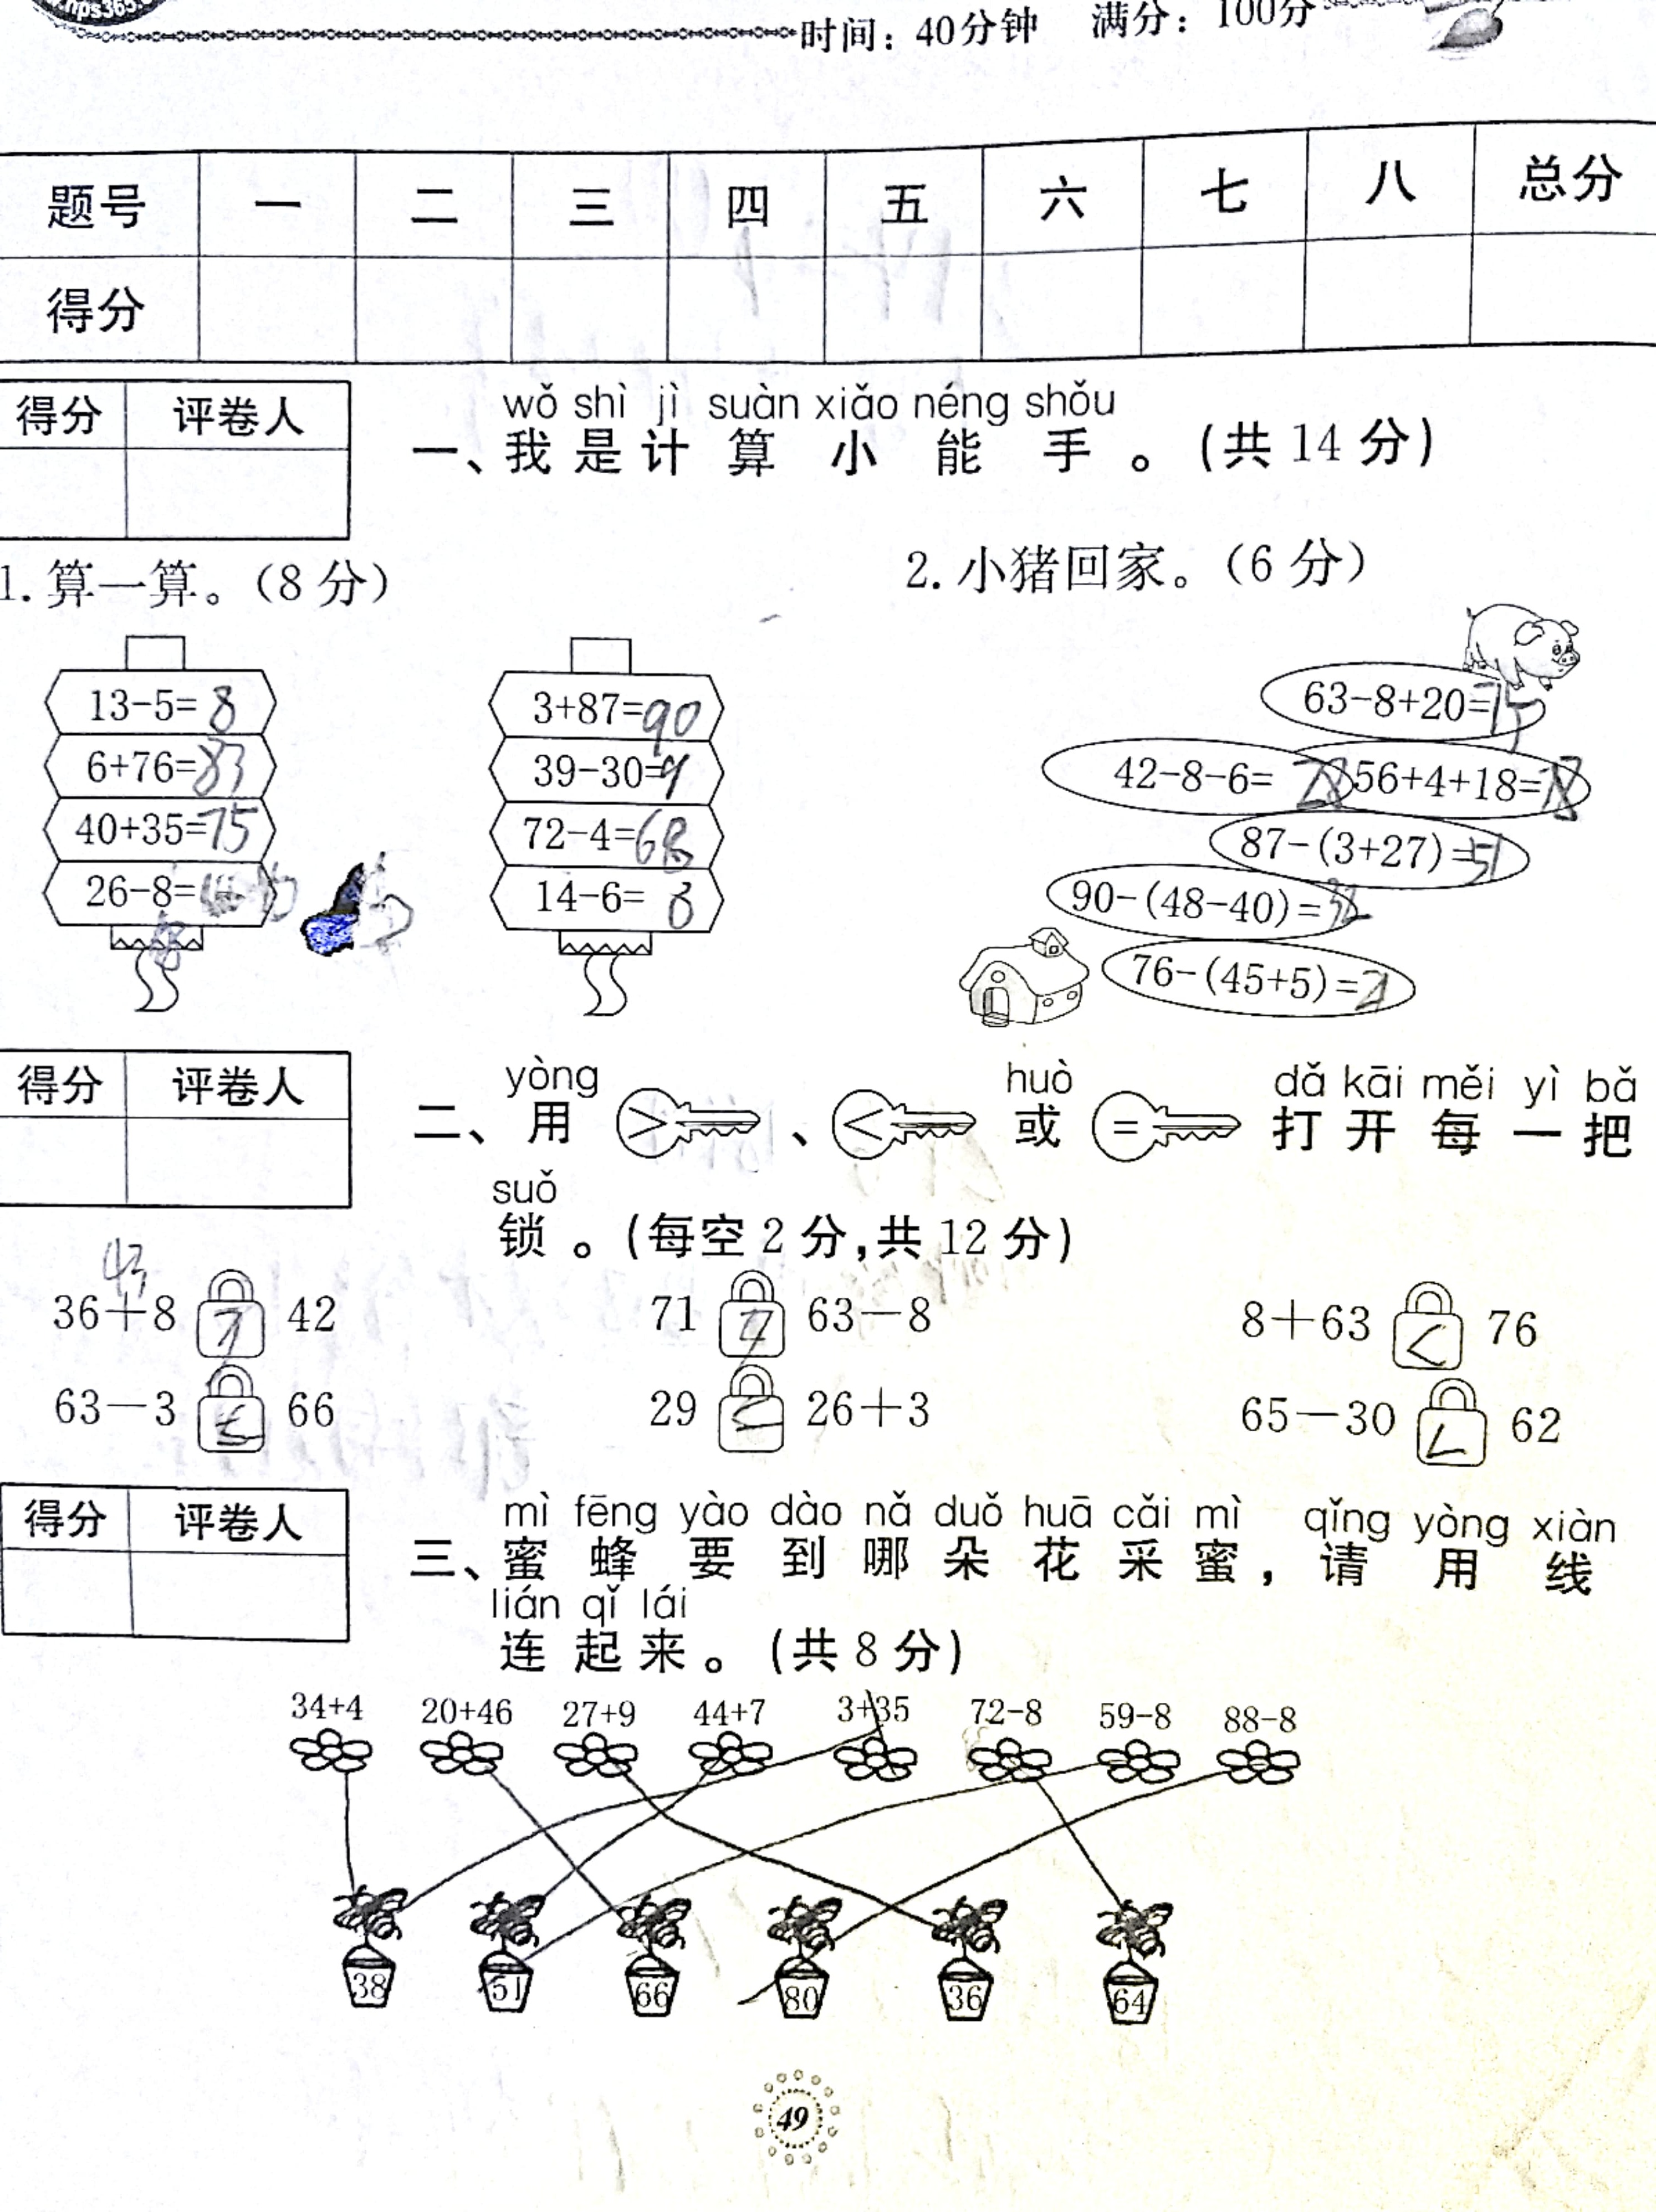 时间：40分钟 满分：100分
题号 一 二 三 四 五 六 七 八 总分
得分
得分 评卷人
wǒ shì jì suàn xiǎo néng shǒu
一、我是计算小能手。(共14分)
1.算一算。(8分)
2.小猪回家。(6分)
13-5=8
6+76=83
40+35=75
26-8=
3+87=90
39-30=9
72-4=68
14-6=8
63-8+20=75
42-8-6=28
56+4+18=78
87-(3+27)=51
90-(48-40)=
76-(45+5)=
得分 评卷人
yòng huò dǎ kāi měi yì bǎ
二、用 > 、 < 或 = 打开每一把
suǒ
锁。(每空2分,共12分)
43
36+8 > 42 71 > 63-8 8+63 < 76
63-3 66 29 = 26+3 65-30 < 62
得分 评卷人
mì fēng yào dào nǎ duǒ huā cǎi mì qǐng yòng xiàn
三、蜜蜂要到哪朵花采蜜,请用线
lián qǐ lái
连起来。(共8分)
34+4 20+46 27+9 44+7 3+35 72-8 59-8 88-8
38 51 66 80 36 64
49